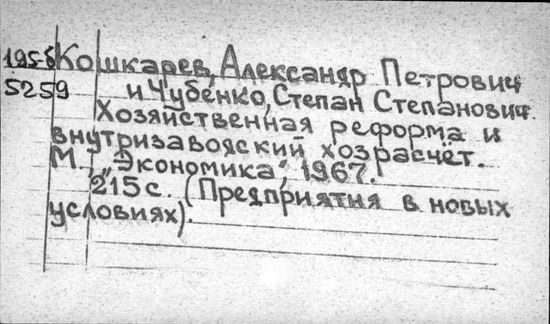 195-5 Кошкарев, Александр Петрович
5259 и Чубенко, Степан Степанович.
Хозяйственная реформа и
внутризавояский хозрасчёт.
М., "Экономика", 1967.
215 с. (Предприятия в новых
условиях).